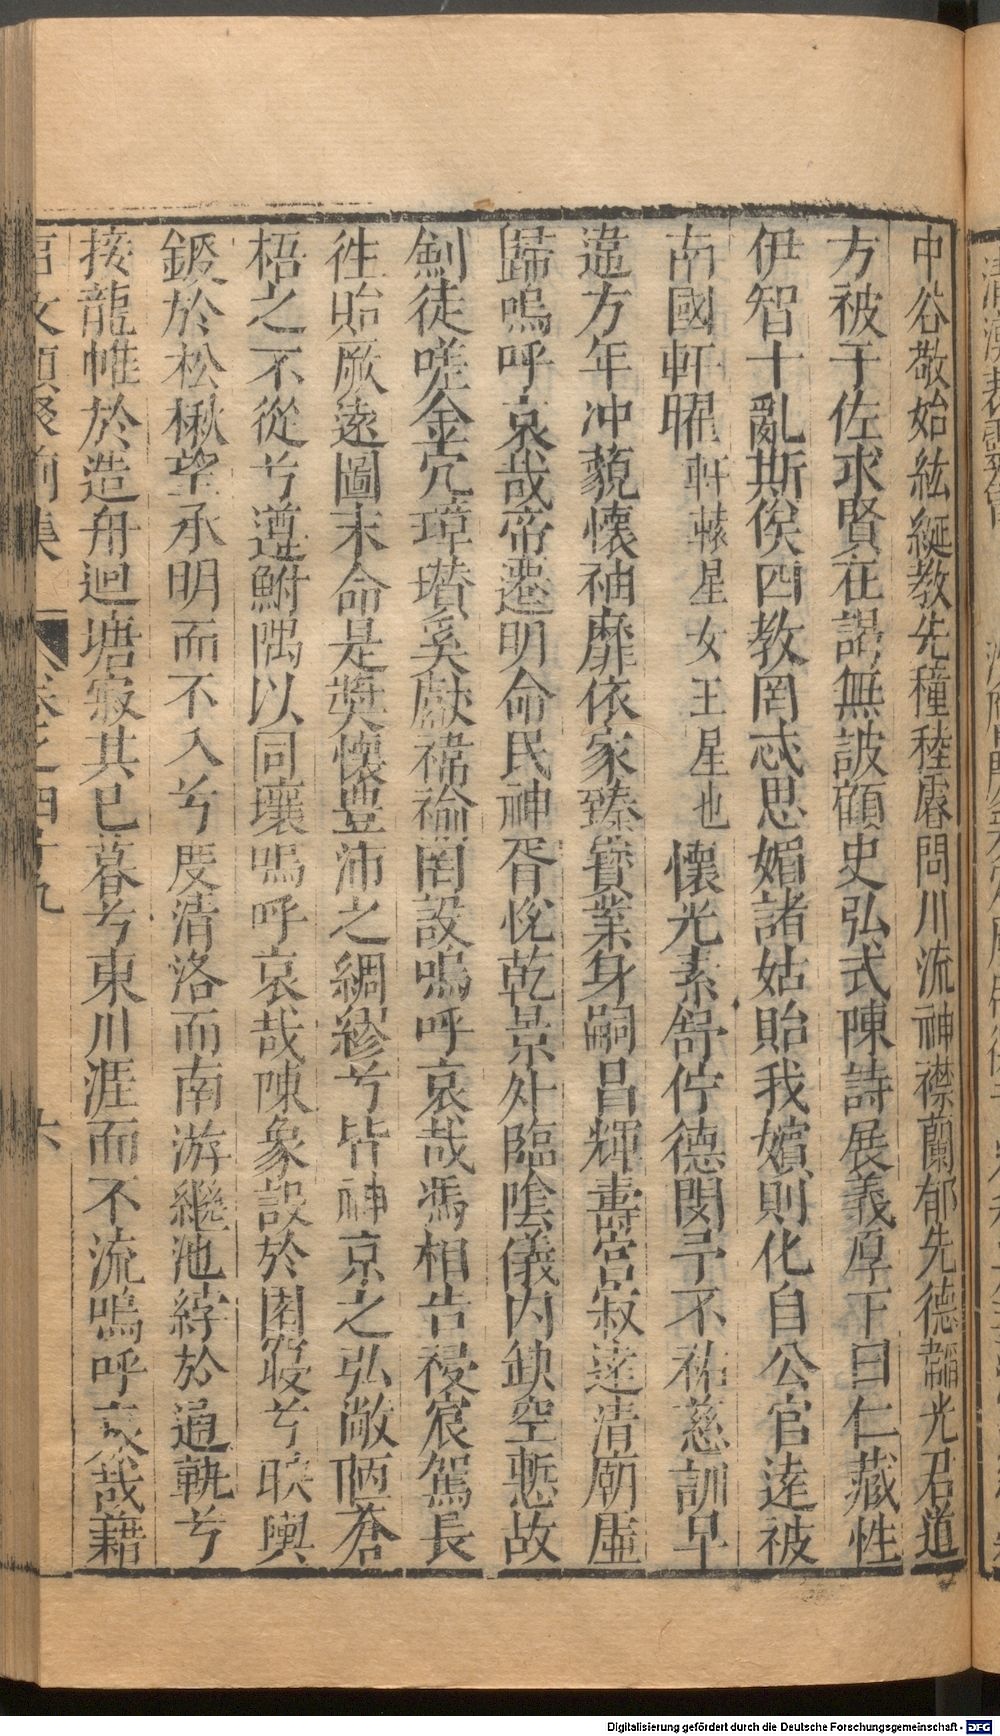 中谷敬始紘綖教先穜稑睿問川流神襟蘭郁先德韜光君道
方被于佐求賢在謁無詖顧史弘式陳詩展義厚下曰仁藏性
伊智十亂斯俟四教罔忒思媚諸姑貽我嬪則化自公官逺被
南國軒曜軒轅星女王星也懷光素舒佇德閔予不祐慈訓早
違方年冲藐懷袖靡依家臻寶業身嗣昌輝壽宮寂逺清廟虛
歸嗚呼哀哉帝遷明命民神胥悅乾景外臨陰儀内缺空悲故
劍徒嗟金穴璋瓚奚獻褘褕罔設嗚呼哀哉馮相告祲宸駕長
徃貽厥遠圖末命是奬懷豊沛之綢繆兮背神京之弘敞陋蒼
梧之不從兮遵鮒隅以同壤嗚呼哀哉陳象設於園寢兮映輿
鍐於松楸望承明而不入兮度清洛而南游繼池綍於通軌兮
接龍帷於造舟迴塘寂其已暮兮東川涯而不流嗚呼哀哉籍
文類聚前集 卷之四十九 六
Digitalisierung gefördert durch die Deutsche Forschungsgemeinschaft - DFG